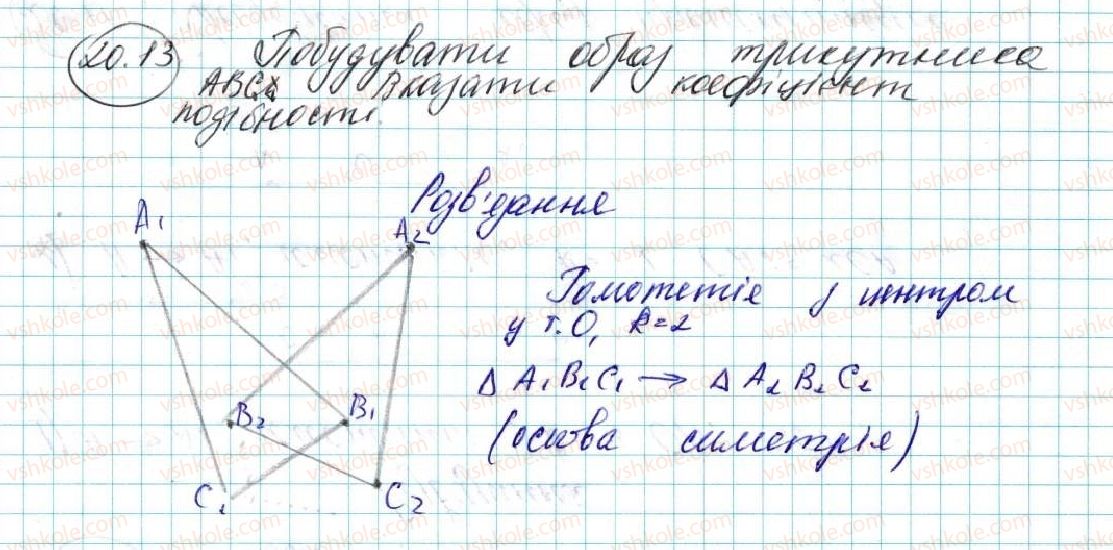 20.13 Побудувати образ трикутника
АВС. Вказати коефіцієнт
подібності.
Розв'язання
A1
A2
Гомотетія з центром
у т.О, k=2
Δ A1B1C1 → Δ A2B2C2
B2
B1
(осьова симетрія)
C1
C2
vshkole.com